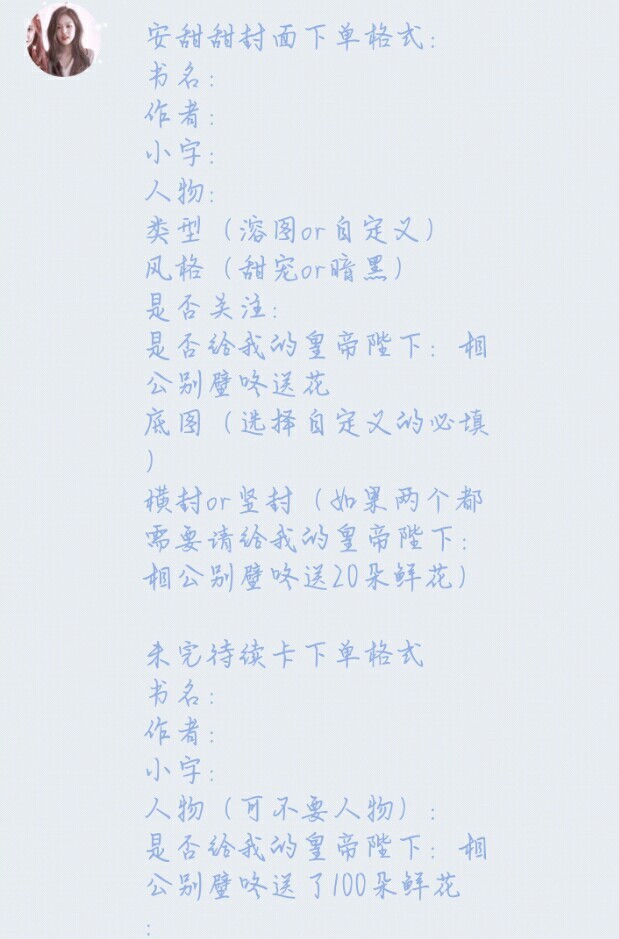 安甜甜封面下单格式:
书名:
作者:
小字:
人物:
类型（溶图or自定义）
风格（甜宠or暗黑）
是否关注:
是否给我的皇帝陛下: 相
公别壁咚送花
底图（选择自定义的必填
）
横封or竖封（如果两个都
需要请给我的皇帝陛下:
相公别壁咚送20朵鲜花）
未完待续卡下单格式
书名:
作者:
小字:
人物（可不要人物）:
是否给我的皇帝陛下: 相
公别壁咚送了100朵鲜花
: